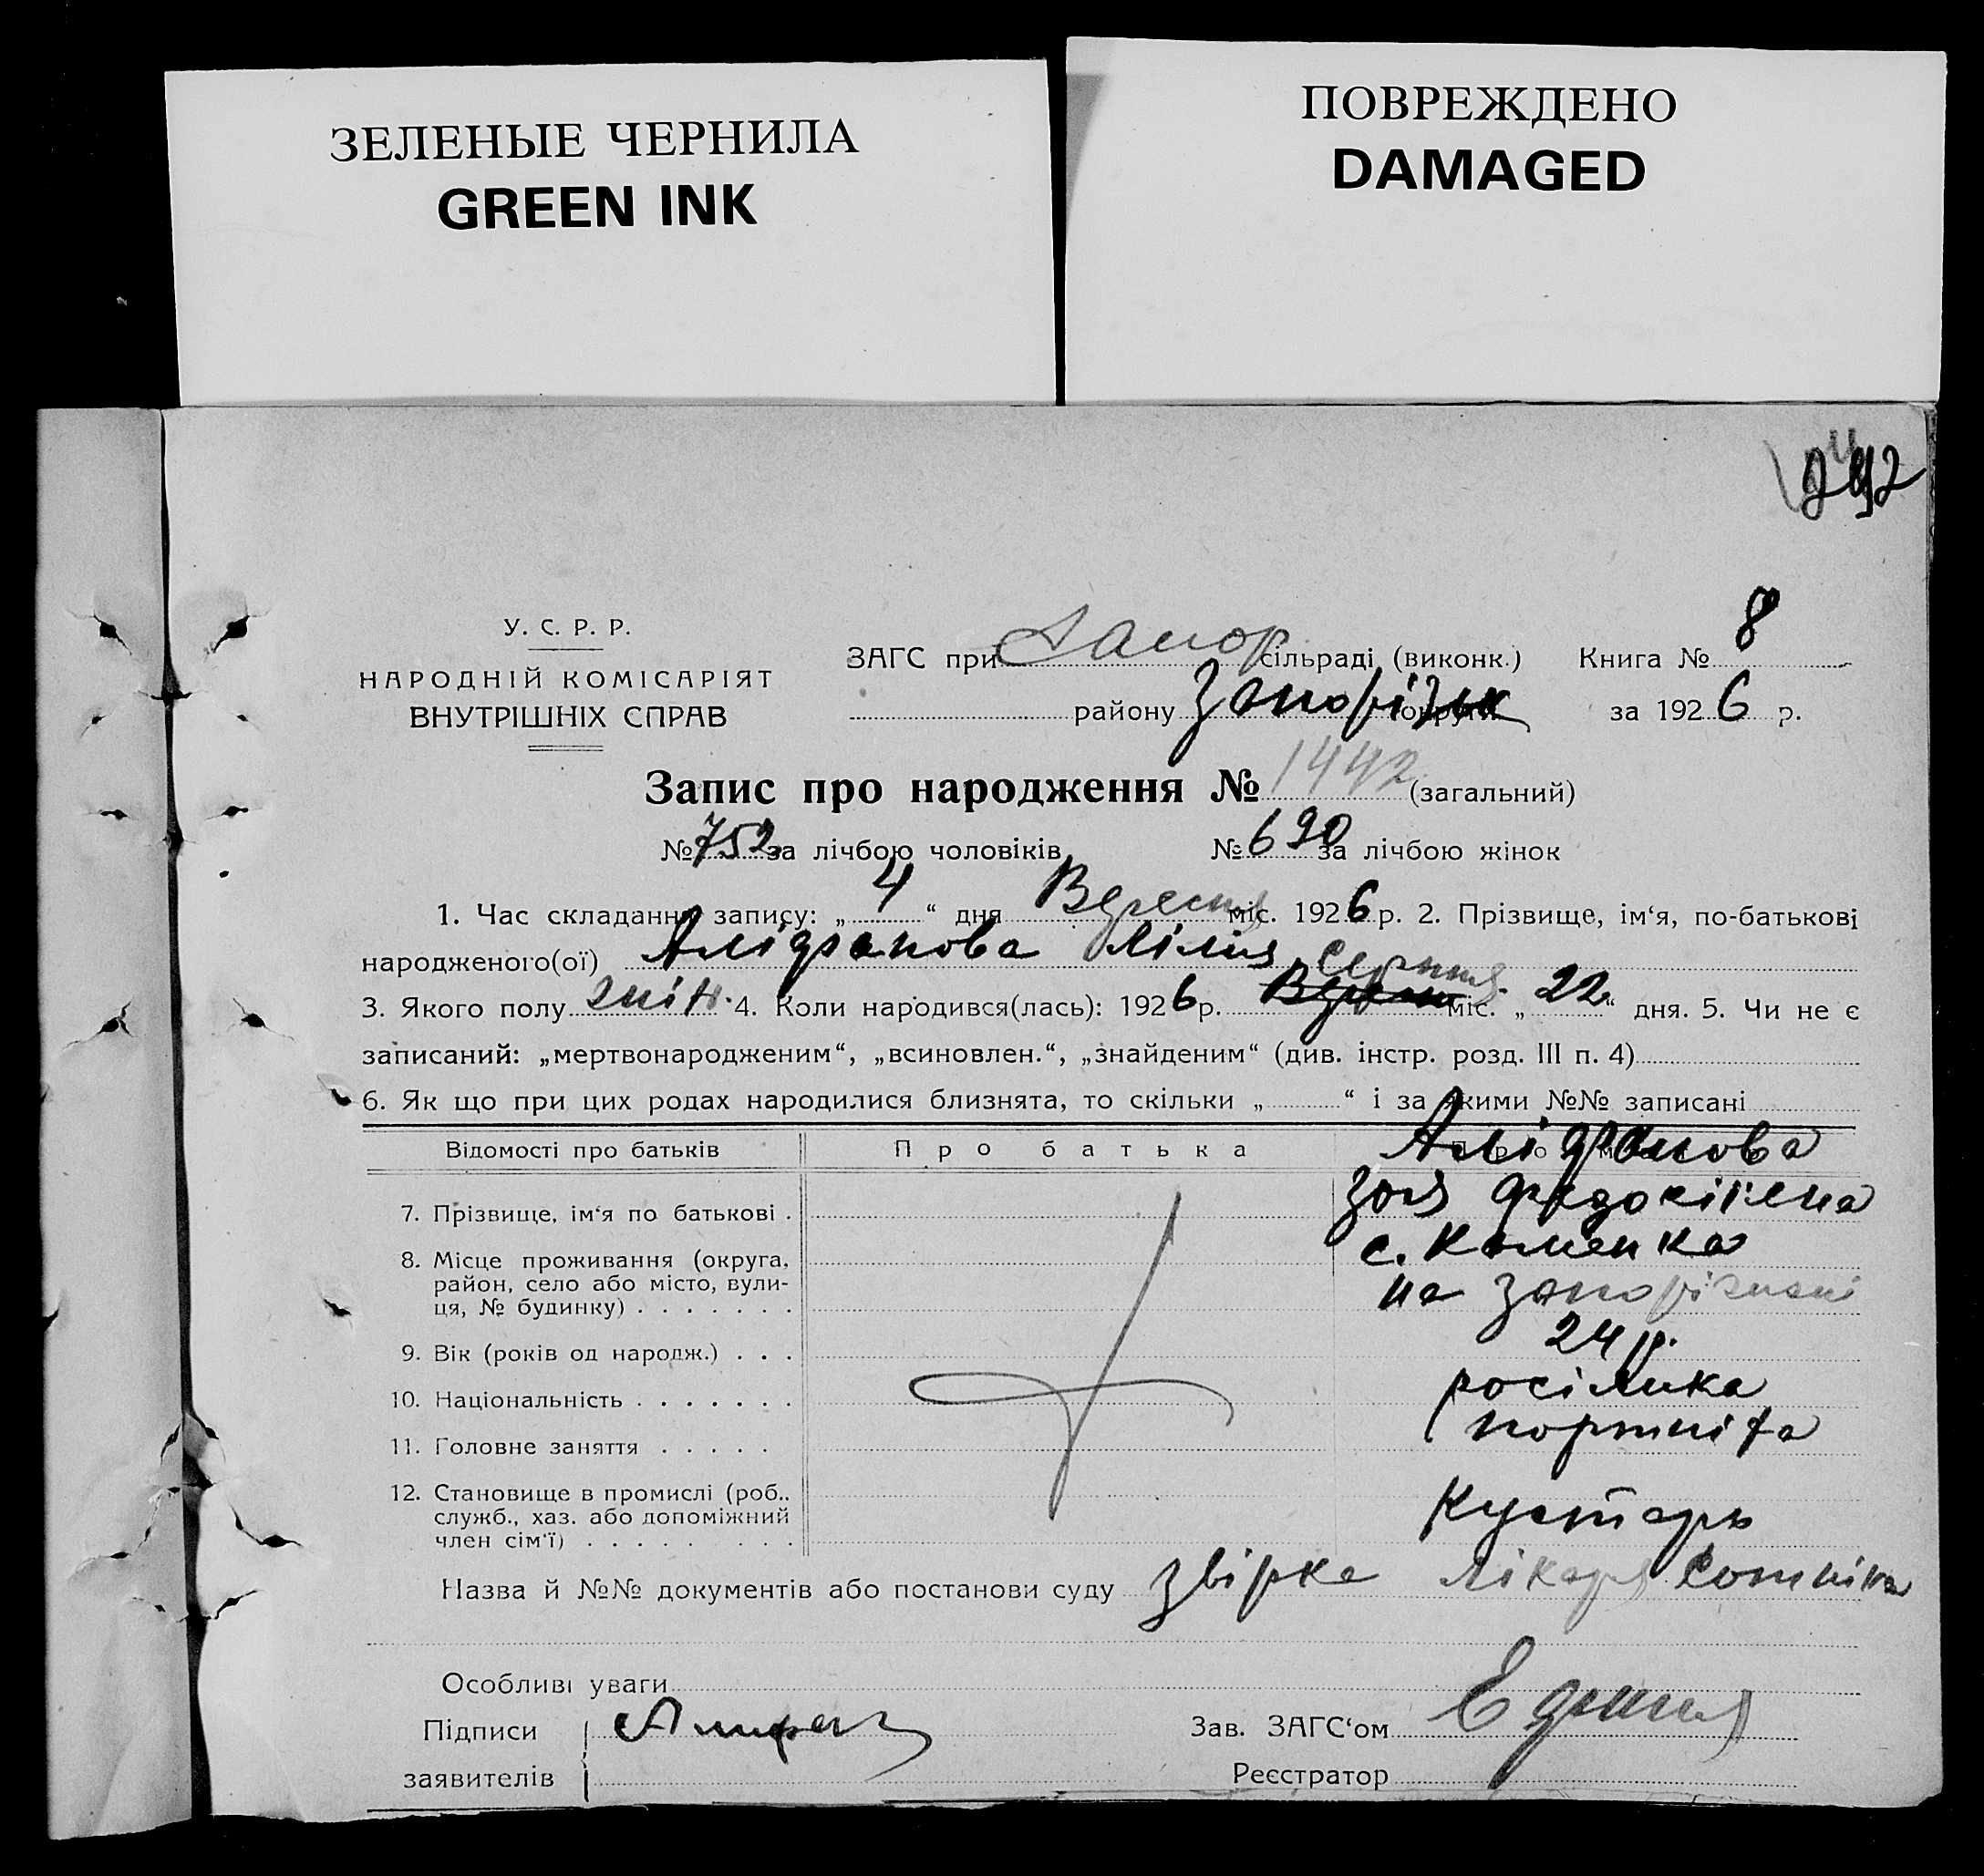 ЗЕЛЕНЫЕ ЧЕРНИЛА
GREEN INK
ПОВРЕЖДЕНО
DAMAGED
242
У. С. Р. Р.
НАРОДНІЙ КОМІСАРІЯТ
ВНУТРІШНІХ СПРАВ
ЗАГС при Запор сільраді (виконк.) Книга № 8
району Запорізьк округи за 1926 р.
Запис про народження № 1442 (загальний)
№ 752 за лічбою чоловіків № 690 за лічбою жінок
1. Час складання запису: „4“ дня Вересня міс. 1926 р. 2. Прізвище, ім‘я, по-батькові
народженого(ої) Аліфанова Лілия
3. Якого полу жін. 4. Коли народився(лась): 1926 р. Серпня міс. „22“ дня. 5. Чи не є
записаний: „мертвонародженим“, „всиновлен.“, „знайденим“ (див. інстр. розд. III п. 4)
6. Як що при цих родах народилися близнята, то скільки „ “ і за якими №№ записані
Відомості про батьків Про батька
7. Прізвище, ім‘я по батькові . Аліфанова
Зоя
8. Місце проживання (округа, район, село або місто, вулиця, № будинку) . . . . . . . с. Каменка
на Запоріжжі
9. Вік (років од народж.) . . . 24 р.
10. Національність . . . . . . . росіянка
11. Головне заняття . . . . .
12. Становище в промислі (роб., служб., хаз. або допоміжний член сім‘ї) . . . . . . . . Кустарь
Назва й №№ документів або постанови суду звірка лікаря
Особливі уваги
Підписи
заявителів
Зав. ЗАГС‘ом
Реєстратор